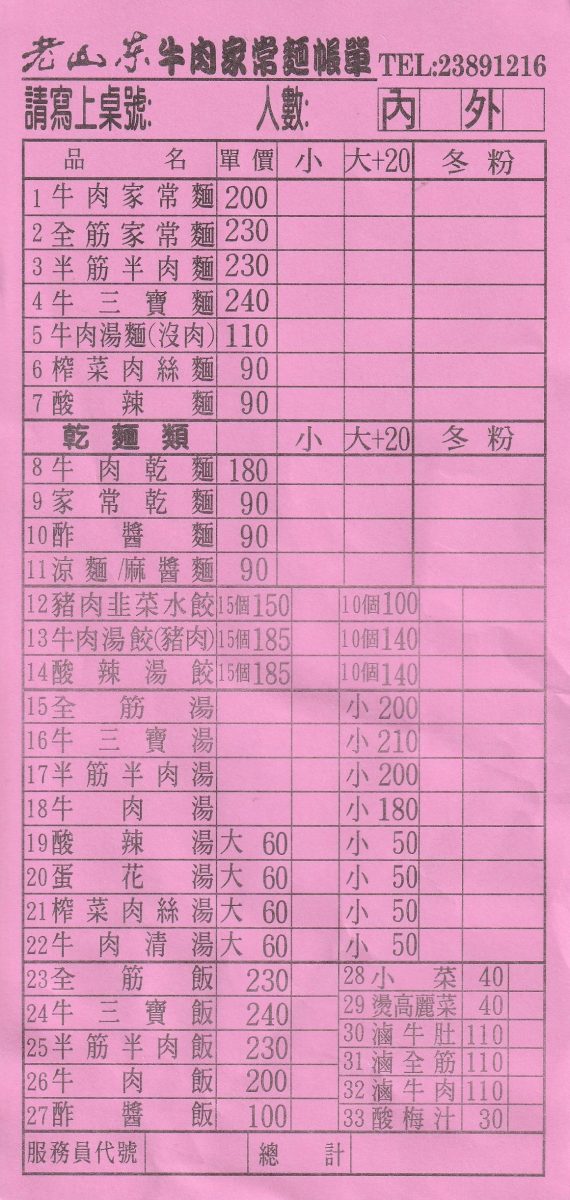 老山东牛肉家常麵帳單 TEL:23891216
請寫上桌號: 人數: 內 外
品名 單價 小 大+20 冬粉
1 牛肉家常麵 200
2 全筋家常麵 230
3 半筋半肉麵 230
4 牛三寶麵 240
5 牛肉湯麵(沒肉) 110
6 榨菜肉絲麵 90
7 酸辣麵 90
乾麵類 小 大+20 冬粉
8 牛肉乾麵 180
9 家常乾麵 90
10 酢醬麵 90
11 涼麵/麻醬麵 90
12 豬肉韭菜水餃 15個150 10個100
13 牛肉湯餃(豬肉) 15個185 10個140
14 酸辣湯餃 15個185 10個140
15 全筋湯 小 200
16 牛三寶湯 小 210
17 半筋半肉湯 小 200
18 牛肉湯 小 180
19 酸辣湯 大 60 小 50
20 蛋花湯 大 60 小 50
21 榨菜肉絲湯 大 60 小 50
22 牛肉清湯 大 60 小 50
23 全筋飯 230
24 牛三寶飯 240
25 半筋半肉飯 230
26 牛肉飯 200
27 酢醬飯 100
28 小菜 40
29 燙高麗菜 40
30 滷牛肚 110
31 滷全筋 110
32 滷牛肉 110
33 酸梅汁 30
服務員代號 總計